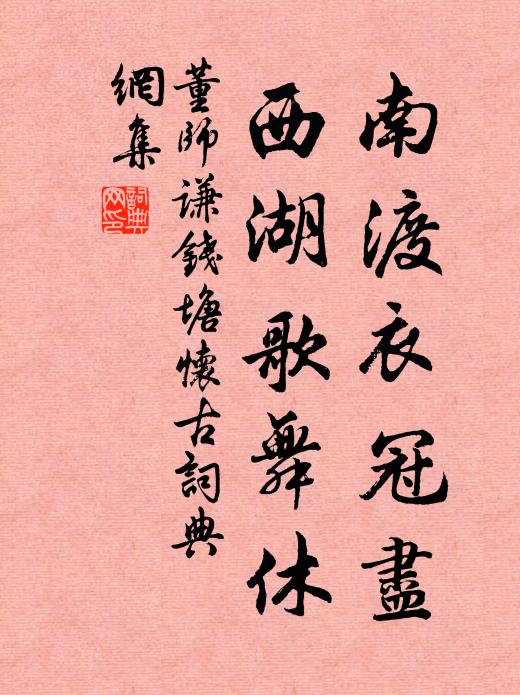 南渡衣冠盡
西湖歌舞休
董師謙錢塘懷古詞典
網集
詞典網印